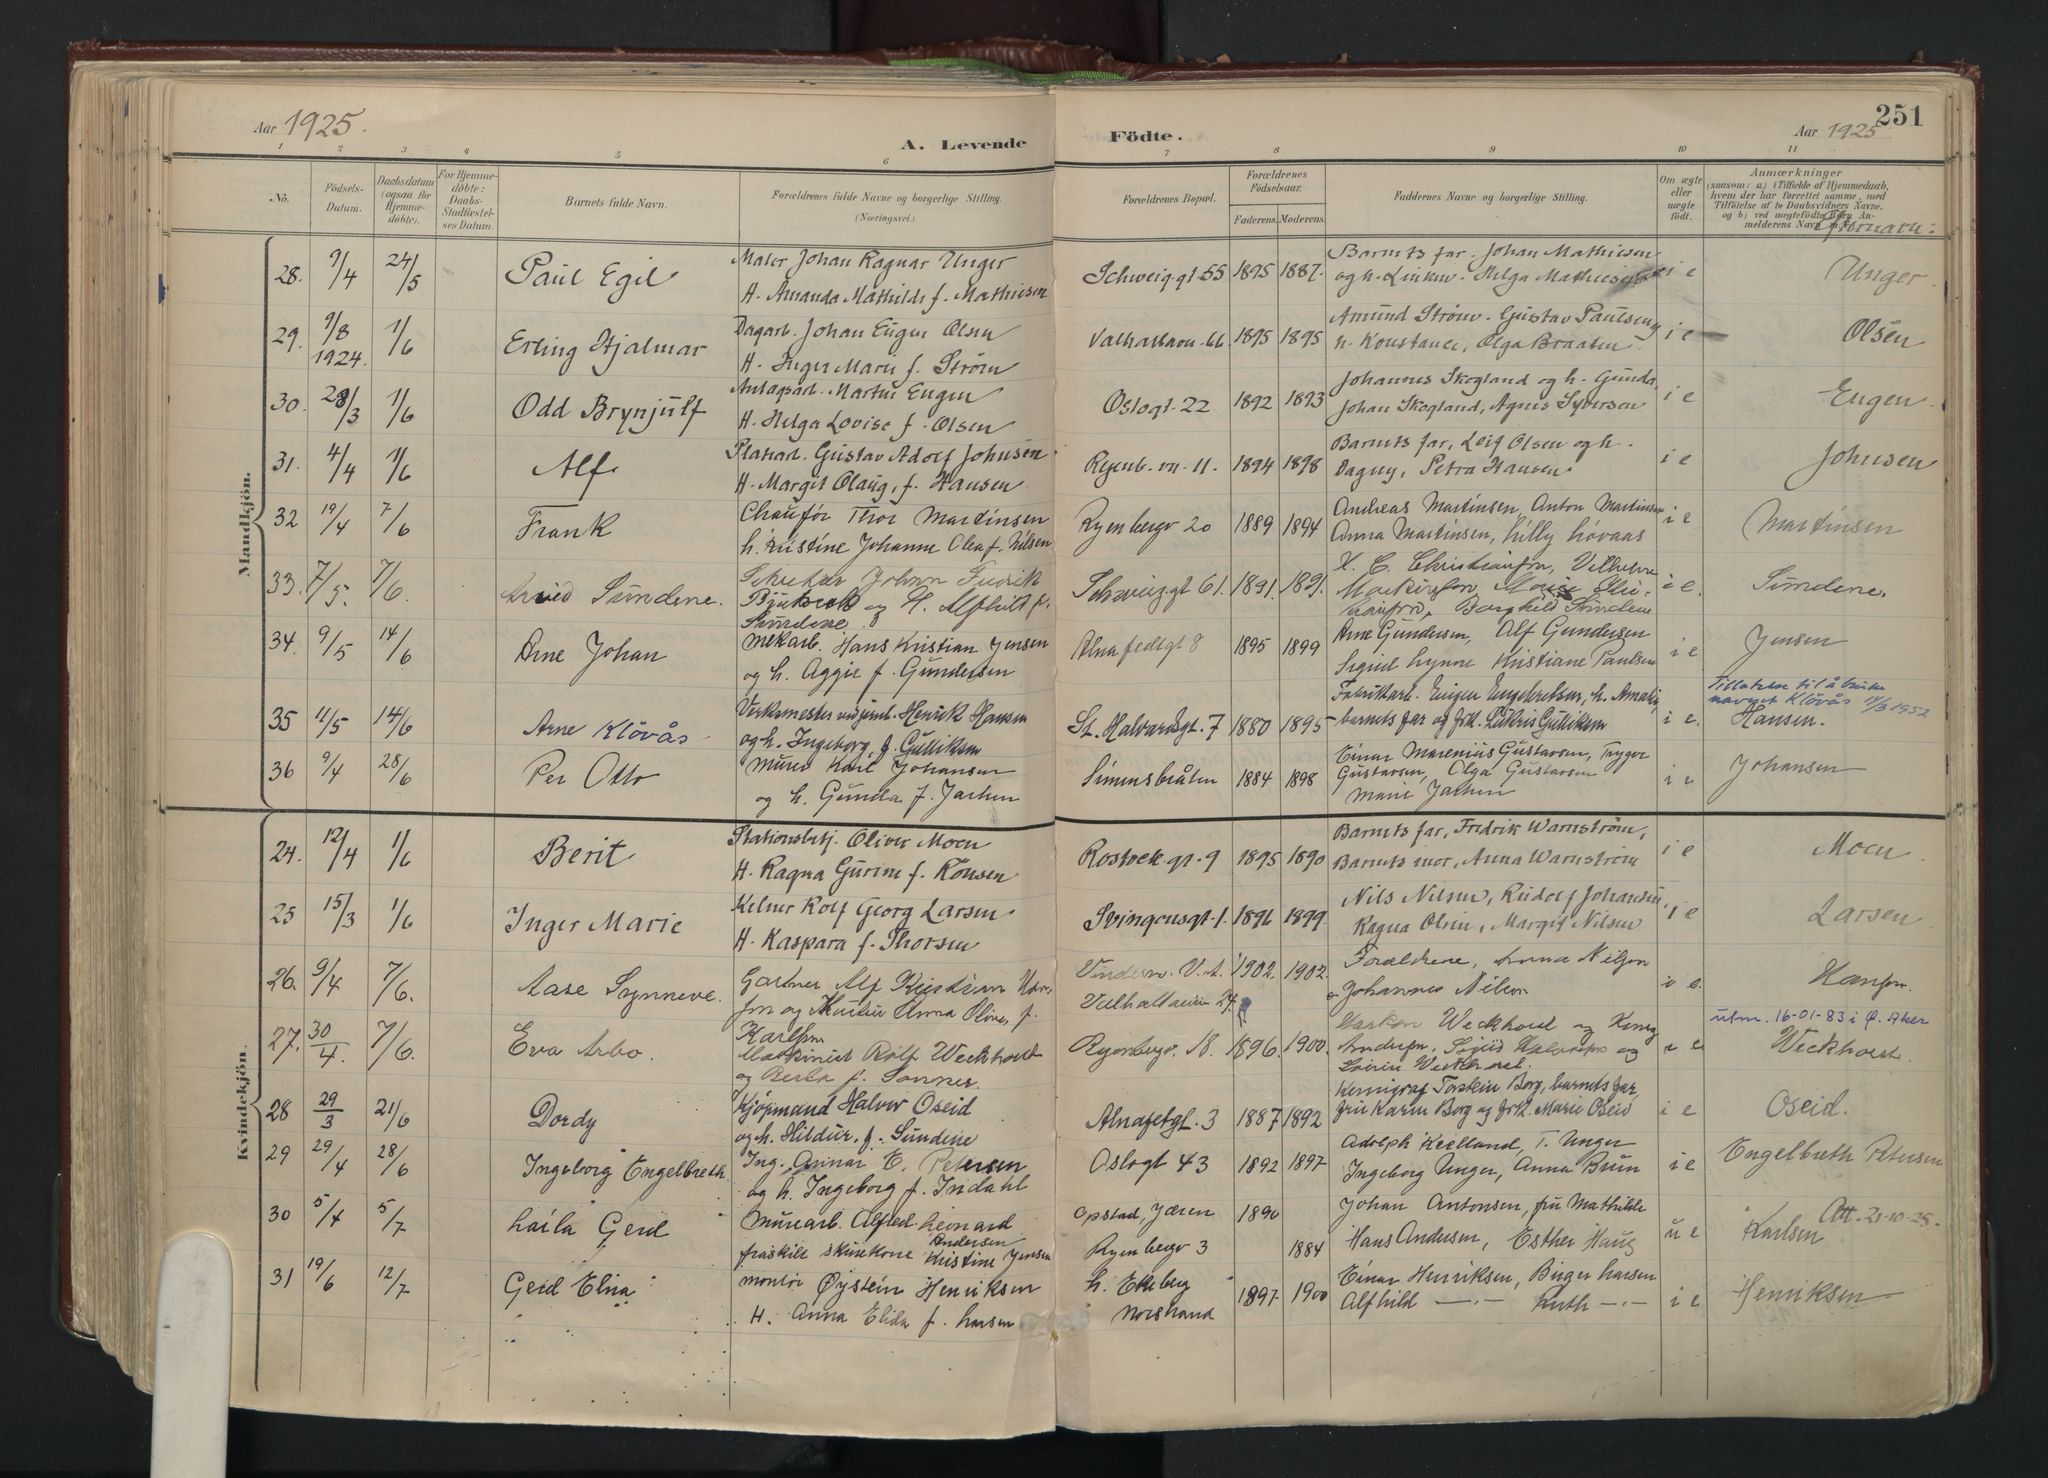 Aar 1925.
A. Levende
Födte.
Aar 1925
251
1 2 3 4 5 6 7 8 9 10 11
No.
Födsels-Datum.
Daabsdatum (ogsaa for Hjemmedöbte).
For Hjemmedöbte: Daabs-Stadfæstelses Datum.
Barnets fulde Navn.
Forældrenes fulde Navne og borgerlige Stilling.
(Næringsvei.)
Forældrenes Bopæl.
Forældrenes Födselsaar.
Faderens. Moderens.
Faddernes Navne og borgerlige Stilling.
Om ægte eller uægte födt.
Anmærkninger
(saasom: a) i Tilfælde af Hjemmedaab, hvem der har forrettet samme, med Tilföielse af to Daabsvidners Navne, og b) ved uægtefödte Børn Anmelderens Navn
Efternavn:
Mandkjön.
28. 9/4 24/5 Paul Egil
Maler Johan Ragnar Unger
H. Amanda Mathilde f. Mathiesen
Schweig.gt 55 1895 1887.
Barnets far. Johan Mathiesen
Helga Mathiesen
i e Unger.
29. 9/8 1924. 1/6 Erling Hjalmar
Dagarb. Johan Eugen Olsen
H. Inger Marie f. Strøm
66 1895 1895
Amund Strøm. Gustav Paulsen
h. Konstance, Olga Braaten
i e Olsen
30. 28/3 1/6 Odd Brynjulf
Martin Eugen
H. Helga Lovise f. Olsen
Oslogt. 22 1892 1893
Johannes Skogland og h. Gunda,
Johan Skogland, Agnes Syversen
i e Eugen
31. 4/4 1/6 Alf
Gustav Adolf Johnsen
H. Margit Olaug, f. Hansen
Ryenb. vn. 11. 1894 1898
Barnets far, Leif Olsen og h.
Dagny, Petra Hansen
i e Johnsen
32 19/4 7/6 Frank
Chaufför Thor Martinsen
h. Kristine Johanne Olea f. Nilsen
Ryenbergv 20 1889 1894
Andreas Martinsen, Anton Martinsen
Anna Martinsen, Lilly Lövaas
i e Martinsen
33. 7/5. 7/6. Arvid Sundene.
Johan Fredrik
og H. Alfhild f.
Sundene
Schweiggt 61. 1891. 1891.
Borghild Sundene
i e. Sundene.
34. 9/5 14/6 Arne Johan
Mekarb. Hans Kristian Jensen
og h. Aggie f. Gundersen
Alnafedtgt 8 1895 1899
Arne Gundersen, Alf Gundersen
Sigrid Lynne Kristiane Paulsen
i e Jensen
35 11/5 14/6 Arne Klövås
Henrik Hansen
og h. Ingeborg, f. Gulliksen
St. Halvardsgt. 7 1880 1895
Fabrikkarb. Engebretsen, h. Amalie,
barnets far og frk. Gulliksen
i e.
Tillatelse til å bruke
navnet Klövås 1952
Hansen.
36 9/4 28/6 Per Otto
Murer Karl Johansen
og h. Gunda f. Jachen
Simensbråten 1884 1898
Einar Marenius Gustavsen, Trygve
Gustavsen, Olga Gustavsen
Marie Jachen
i e Johansen
Kvindekjön.
24. 12/4 1/6 Berit
Stationsbetj. Oliver Moen
H. Ragna Gurine f. Rönsen
Rostock gt. 9 1895 1890
Barnets far, Fredrik Warnström,
Barnets mor, Anna Warnström
i e Moen
25 15/3 1/6 Inger Marie
Kelner Rolf Georg Larsen
H. Kaspara f. Thorsen
1896 1899
Nils Nilsen, Rudolf Johansen,
Ragna Olsen, Margit Nilsen
i e Larsen
26. 9/4 7/6. Aase Synneve.
Gartner Alf Kristian
og Anna Oline, f.
Karlsen
Vinderen. 1902. 1902.
Valhallaveien 24.
Forældrene, Anna Nilsen
Johannes Nilsen
Hansen.
27. 30/4. 7/6. Eva Arbo.
Maskinist Rolf Weckhorst
og Berla f. Sonner.
Ryenbergv. 18. 1896. 1900.
Haakon Weckhorst og
Sigrid Halvorsen og
Weckhorst.
utm. 16-01-83 i Ø. Aker
Weckhorst.
28 29/3 21/6 Dordy
Kjöpmand Halvor Oseid
og h. Hildur, f. Sundene
Alnafetgt. 3 1887 1892
Torstein Borg, barnets far,
fru Karen Borg og frk. Marie Oseid
i e Oseid.
29 29/4 28/6 Ingeborg Engelbreth
Ing. E. Petersen
og h. Ingeborg f. Indahl
Oslogt 43 1892 1897
Adolph Keelland, T. Unger
Ingeborg Unger, Anna Bruun
i e Engelbreth Petersen
30 5/4 5/7 Laila Gerd
Murearb. Alfred Leonard
Andersen
fraskilt Kristine Jensen
Opstad, Jæren 1890
Ryenbergv 3 1884
Johan Antonsen, fru Mathilde
Hans Andersen, Esther Haug
u e Karlsen
Att. 21-10-25.
31 19/6 12/7 Gerd Elna
Montör Øystein Henriksen
H. Anna Elida f. Larsen
h. Ekeberg
Norstrand
1897 1900
Einar Henriksen, Birger Larsen
Alfhild —·— Ruth —·—
i e Henriksen